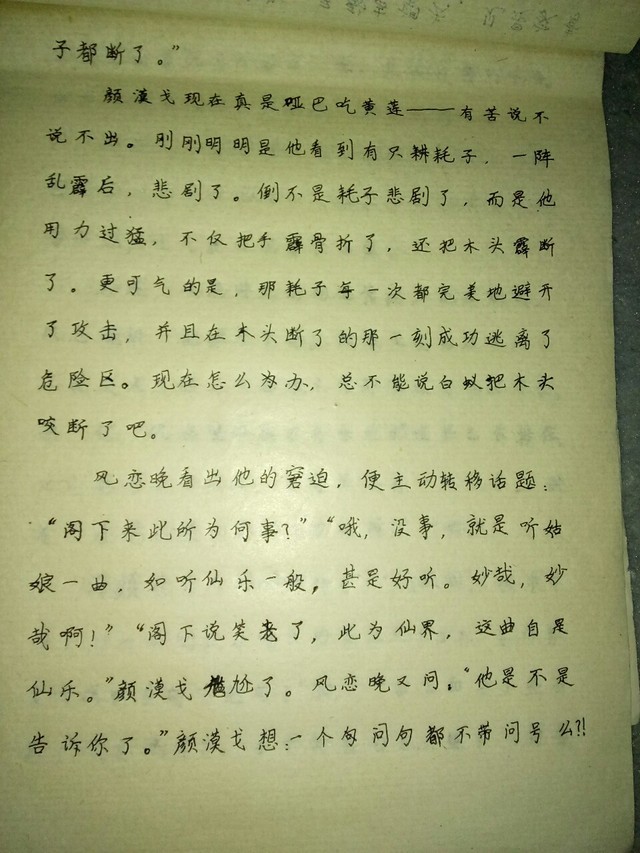 子都断了。”
颜漠戈现在真是哑巴吃黄莲——有苦说不
说不出。刚刚明明是他看到有只耗耗子，一阵
乱霹后，悲剧了。倒不是耗子悲剧了，而是他
用力过猛，不仅把手霹骨折了，还把木头霹断
了。更可气的是，那耗子每一次都完美地避开
了攻击，并且在木头断了的那一刻成功逃离了
危险区。现在怎么办，总不能说白蚁把木头
咬断了吧。
风恋晚看出他的窘迫，便主动转移话题：
“阁下来此所为何事？”“哦，没事，就是听姑
娘一曲，如听仙乐一般，甚是好听。妙哉，妙
哉啊！”“阁下说笑了，此为仙界，这曲自是
仙乐。”颜漠戈尴尬了。风恋晚又问：“他是不是
告诉你了。”颜漠戈想：一个问句都不带问号么?!